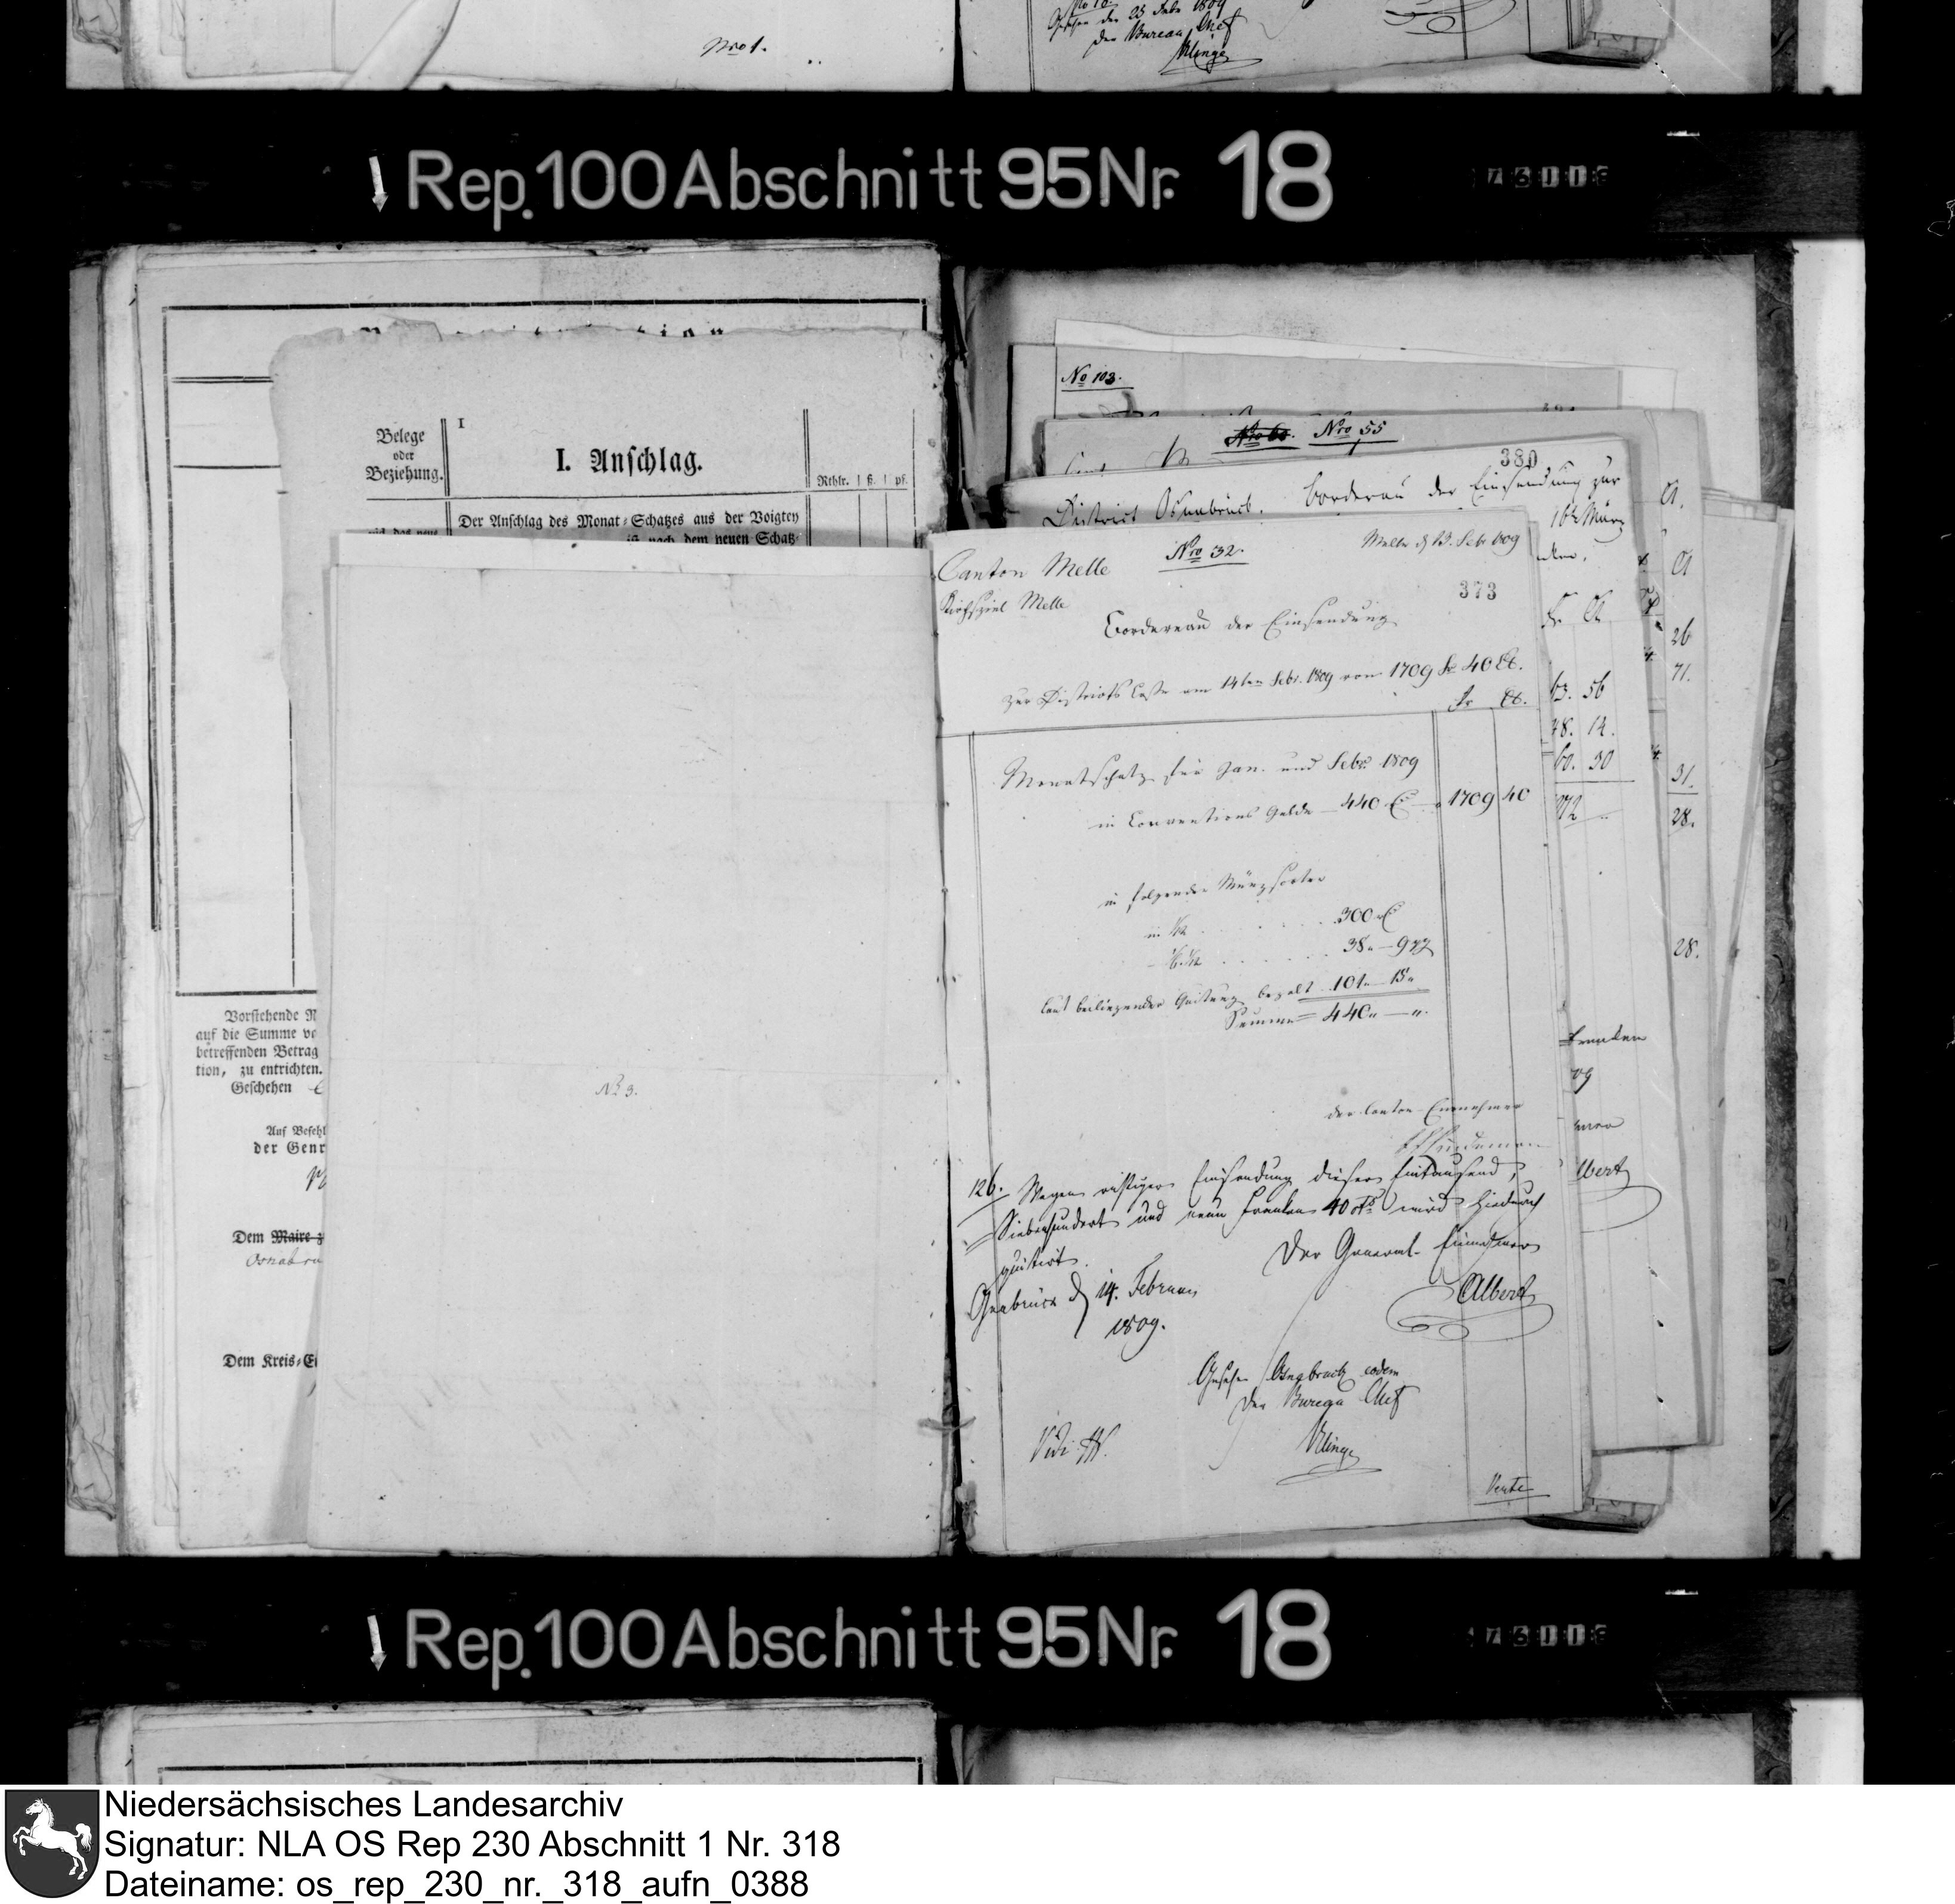 No 10
Gesehen den 25 Febr 1809
Der Bureau Chef
Klinge
Nro 1.
Rep. 100 Abschnitt 95 Nr. 18
Belege
oder
Beziehung.
I
I. Anschlag.
Rthlr. ß. pf.
Der Anschlag des Monat-Schatzes aus der Voigtey
ist nach dem neuen Schatz-
Vorstehende
auf die Summe
betreffenden Betrag
tion, zu entrichten.
Geschehen
Auf Befehl
der Gen
Dem Maire
Osnabrü
Dem Kreis-
No 3.
No 103.
Nro 60. Nro 55
380
District Osnabrück. Bordereau der Einsendung zur
16t März
Canton Melle
Nro 32.
Melle d 13. Febr 809
Kirchspiel Melle
373
Bordereau der Einsendung
zur Districts Casse am 14ten Febr. 1809 von 1709 Fr 40 Ct.
Fr Ct.
Monatschatz für Jan. und Febr. 1809
in Conventions Gelde 440 1709 40
in folgenden Münzsorten
in 300
38 9
laut beiliegender Quitung bezalt 101 15
Summa 440
der Canton-Einnehmer
126. Wegen richtiger Einsendung dieser Eintausend,
Siebenhundert und neun Franken 40 Cts wird hiedurch
quitirt.
Der General-Einnehmer
Osnabrück d 14. Februar
1809.
Albert
Gesehen Osnabrück eodem
Der Bureau Chef
Klinge
Vidi
Verte
63. 56
48. 14.
60. 30
26
71.
31.
28.
28.
Franken
Albert
Rep. 100 Abschnitt 95 Nr. 18
Niedersächsisches Landesarchiv
Signatur: NLA OS Rep 230 Abschnitt 1 Nr. 318
Dateiname: os_rep_230_nr._318_aufn_0388